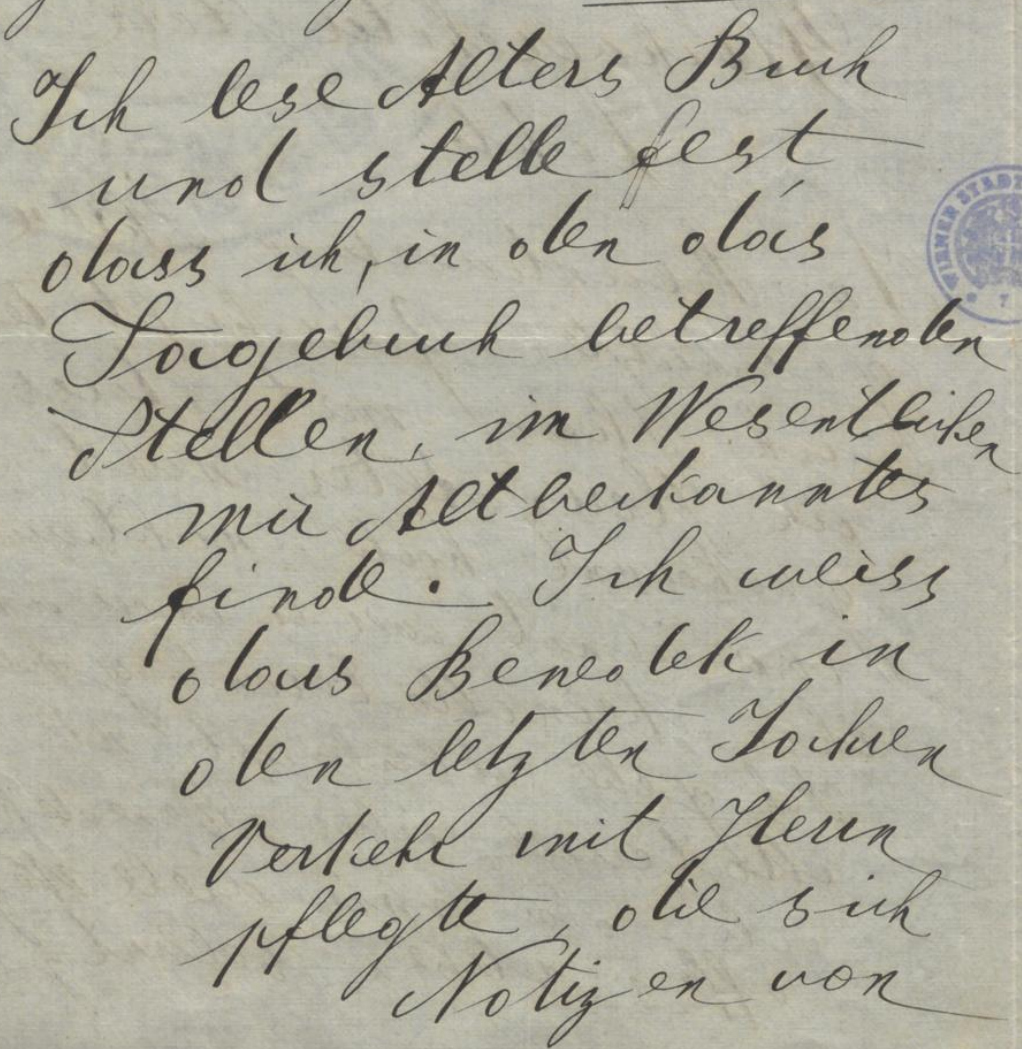 Ich lese Alters Buch
und stelle fest
dass ich, in den das
Tagebuch betreffenden
Stellen, im Wesentlichen
mir Altbekanntes
finde. Ich weiss
dass Benedek in
den letzten Jahren
Verkehr mit Herrn
pflegte, die sich
Notizen von